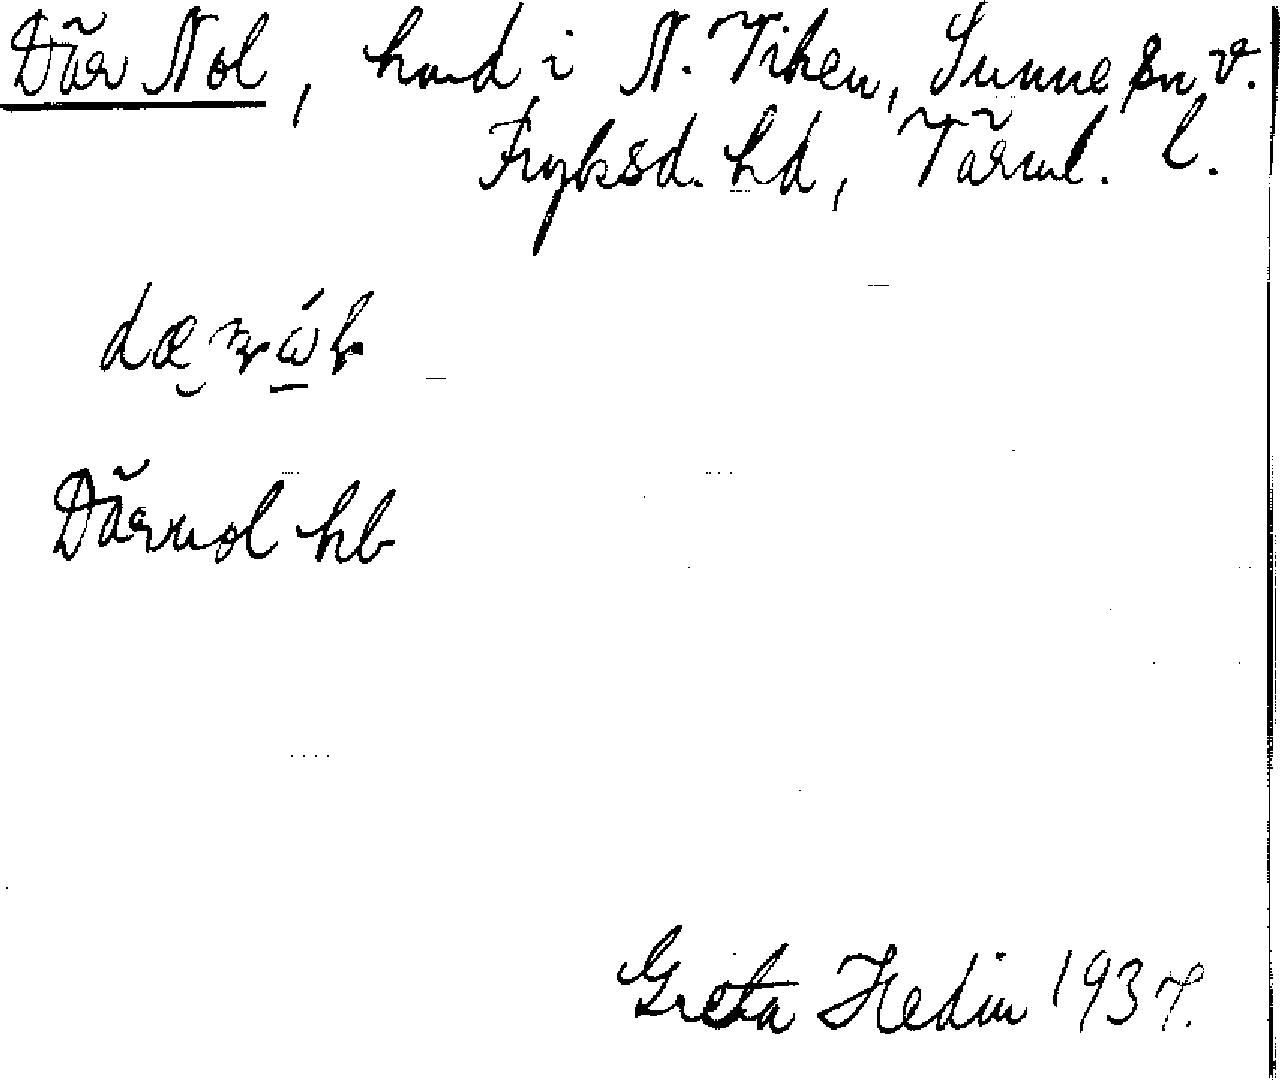 Där Nol, hmd i N. Viken, Sunne sn V.
Fryksd. hd, Värml. l.
Därnol hb
Greta Hedin 1937.